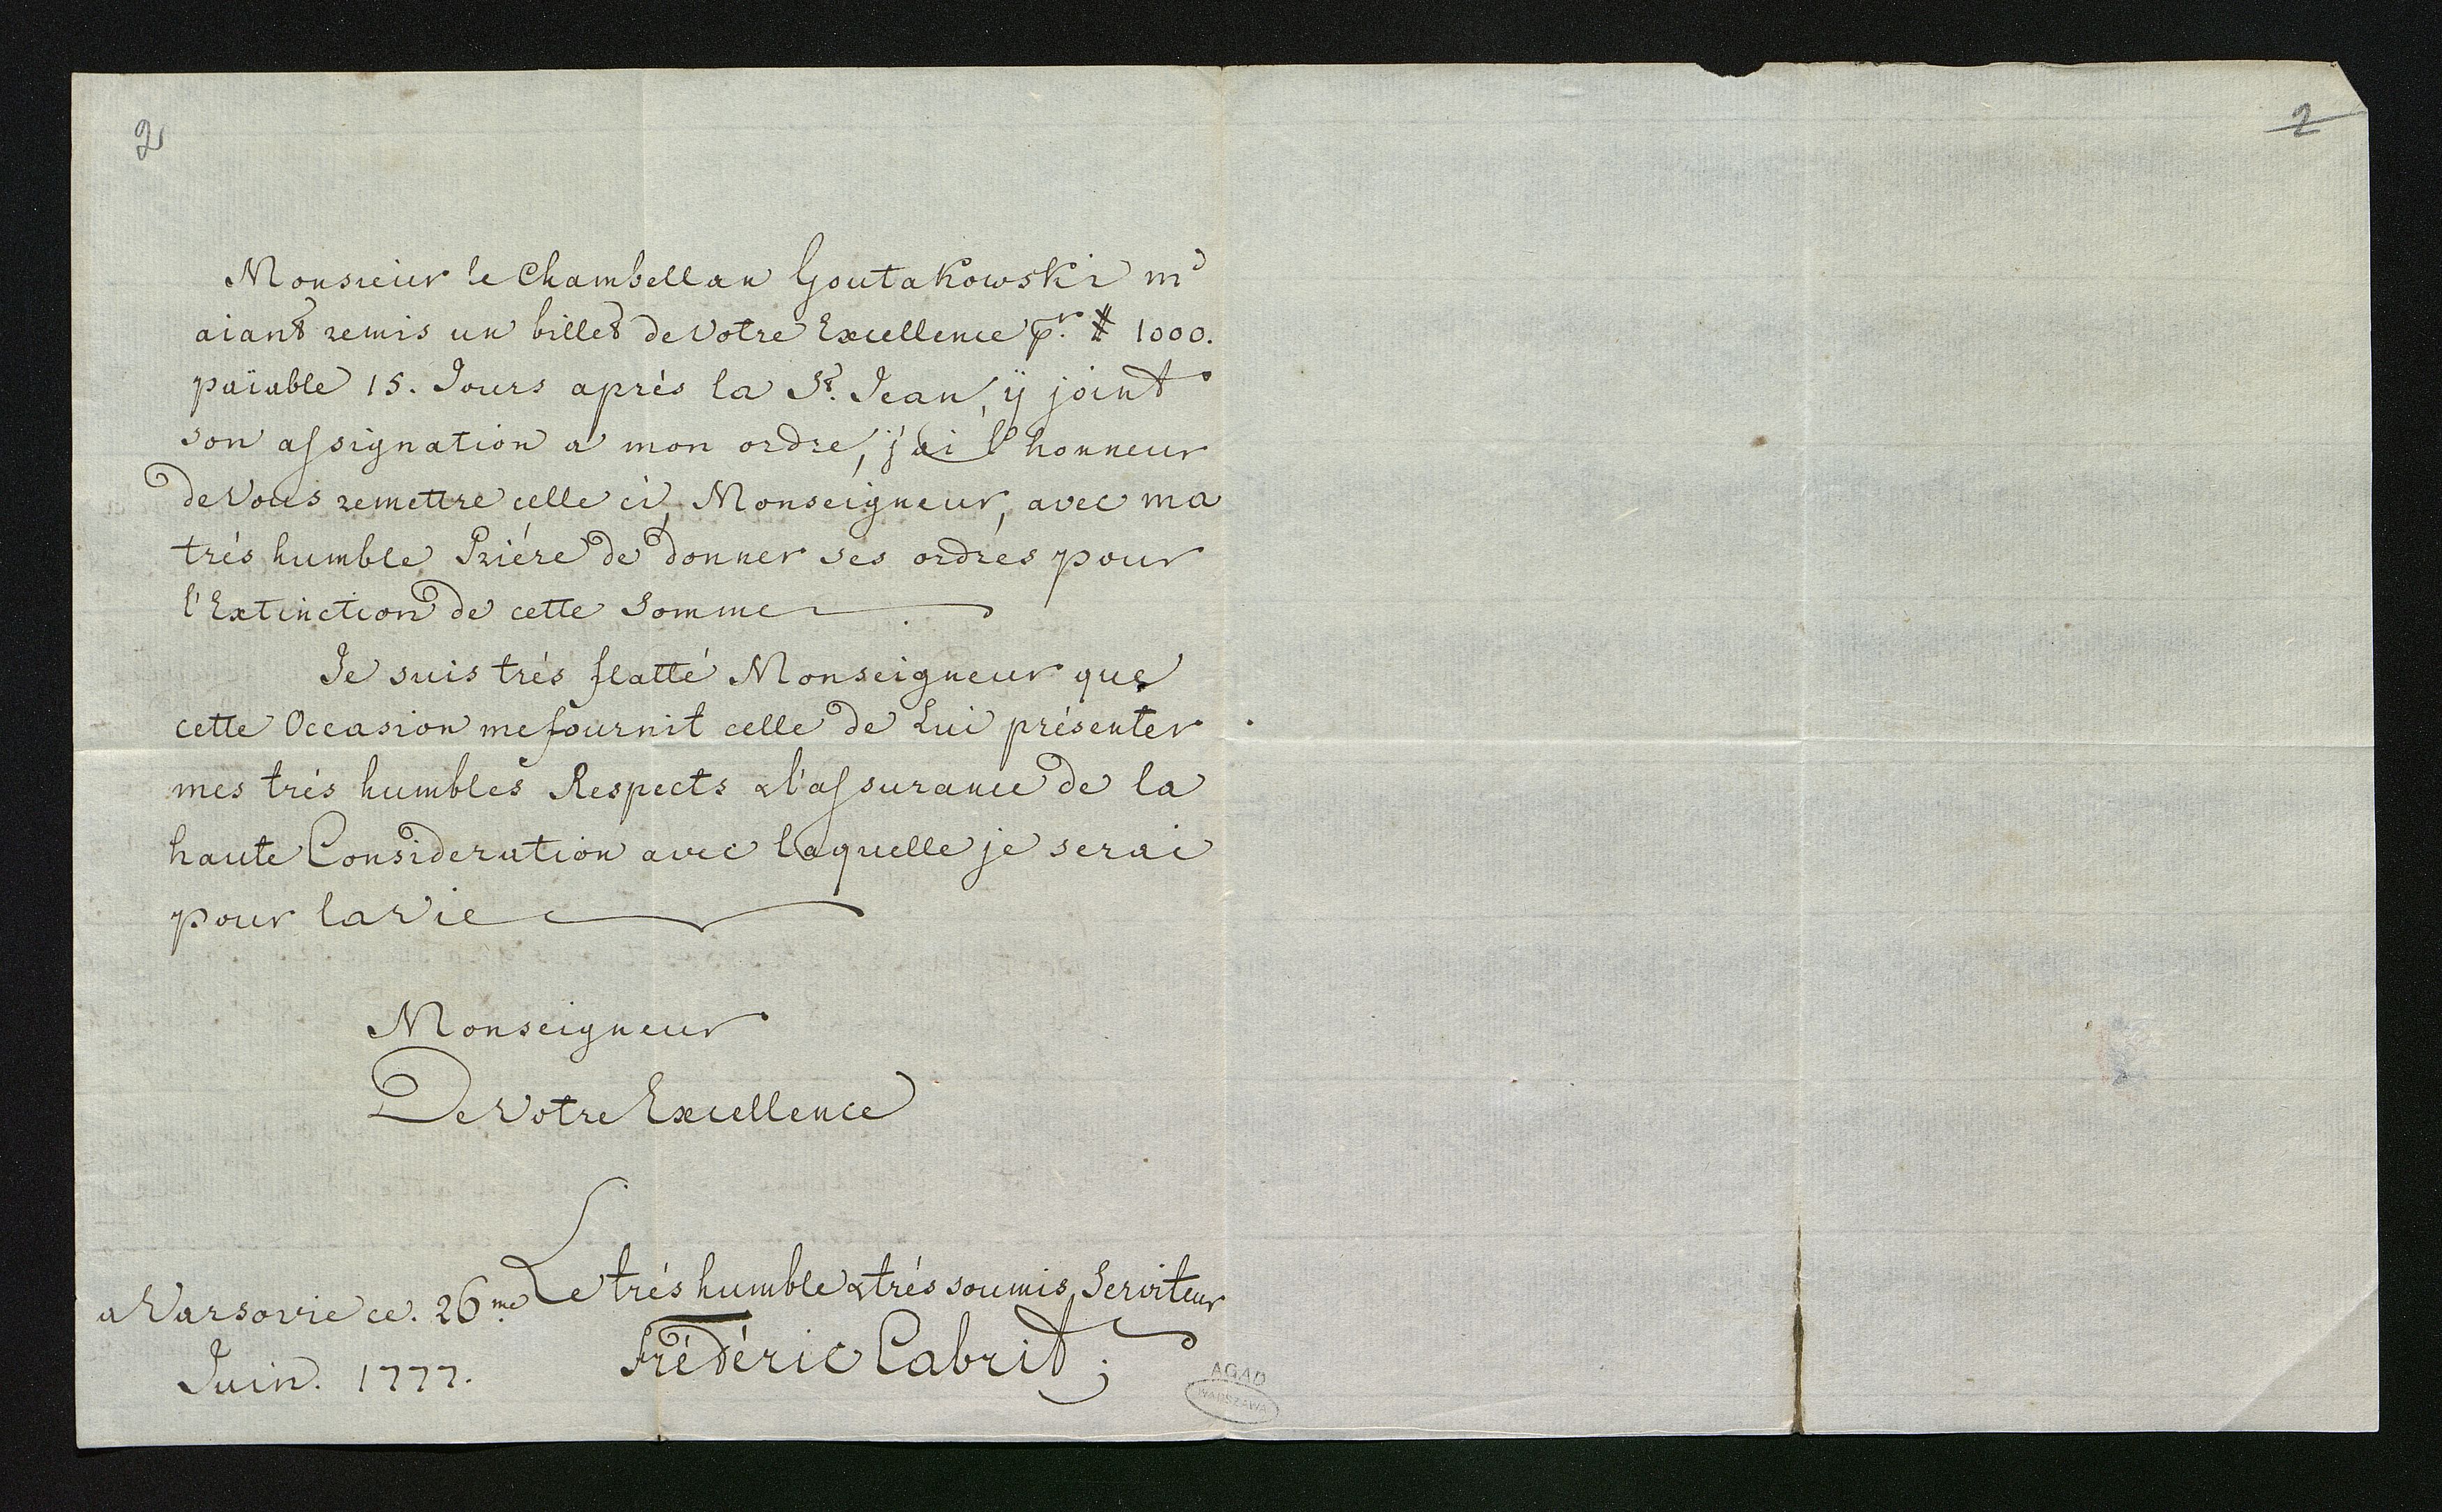 2
2
Monsieur le Chambellan Goutakowski m'
aiant remis un billet de Votre Excellence pr. # 1000.
païable 15. Jours aprés la St. Jean, ÿ joint
son assignation a mon ordre, j'ai l'honneur
de Vous remettre celle ci, Monseigneur, avec ma
trés humble Priére de donner ses ordres pour
l'Extinction de cette Somme
Je suis trés flatté Monseigneur que
cette Occasion me fournit celle de Lui présenter
mes trés humbles Respects & l'assurance de la
haute Consideration avec laquelle je serai
pour la Vie
Monseigneur
De Votre Excellence
Le trés humble & trés soumis Serviteur
a Varsovie ce. 26me
Juin. 1777.
Frédéric Cabrit
AGAD
WARSZAWA